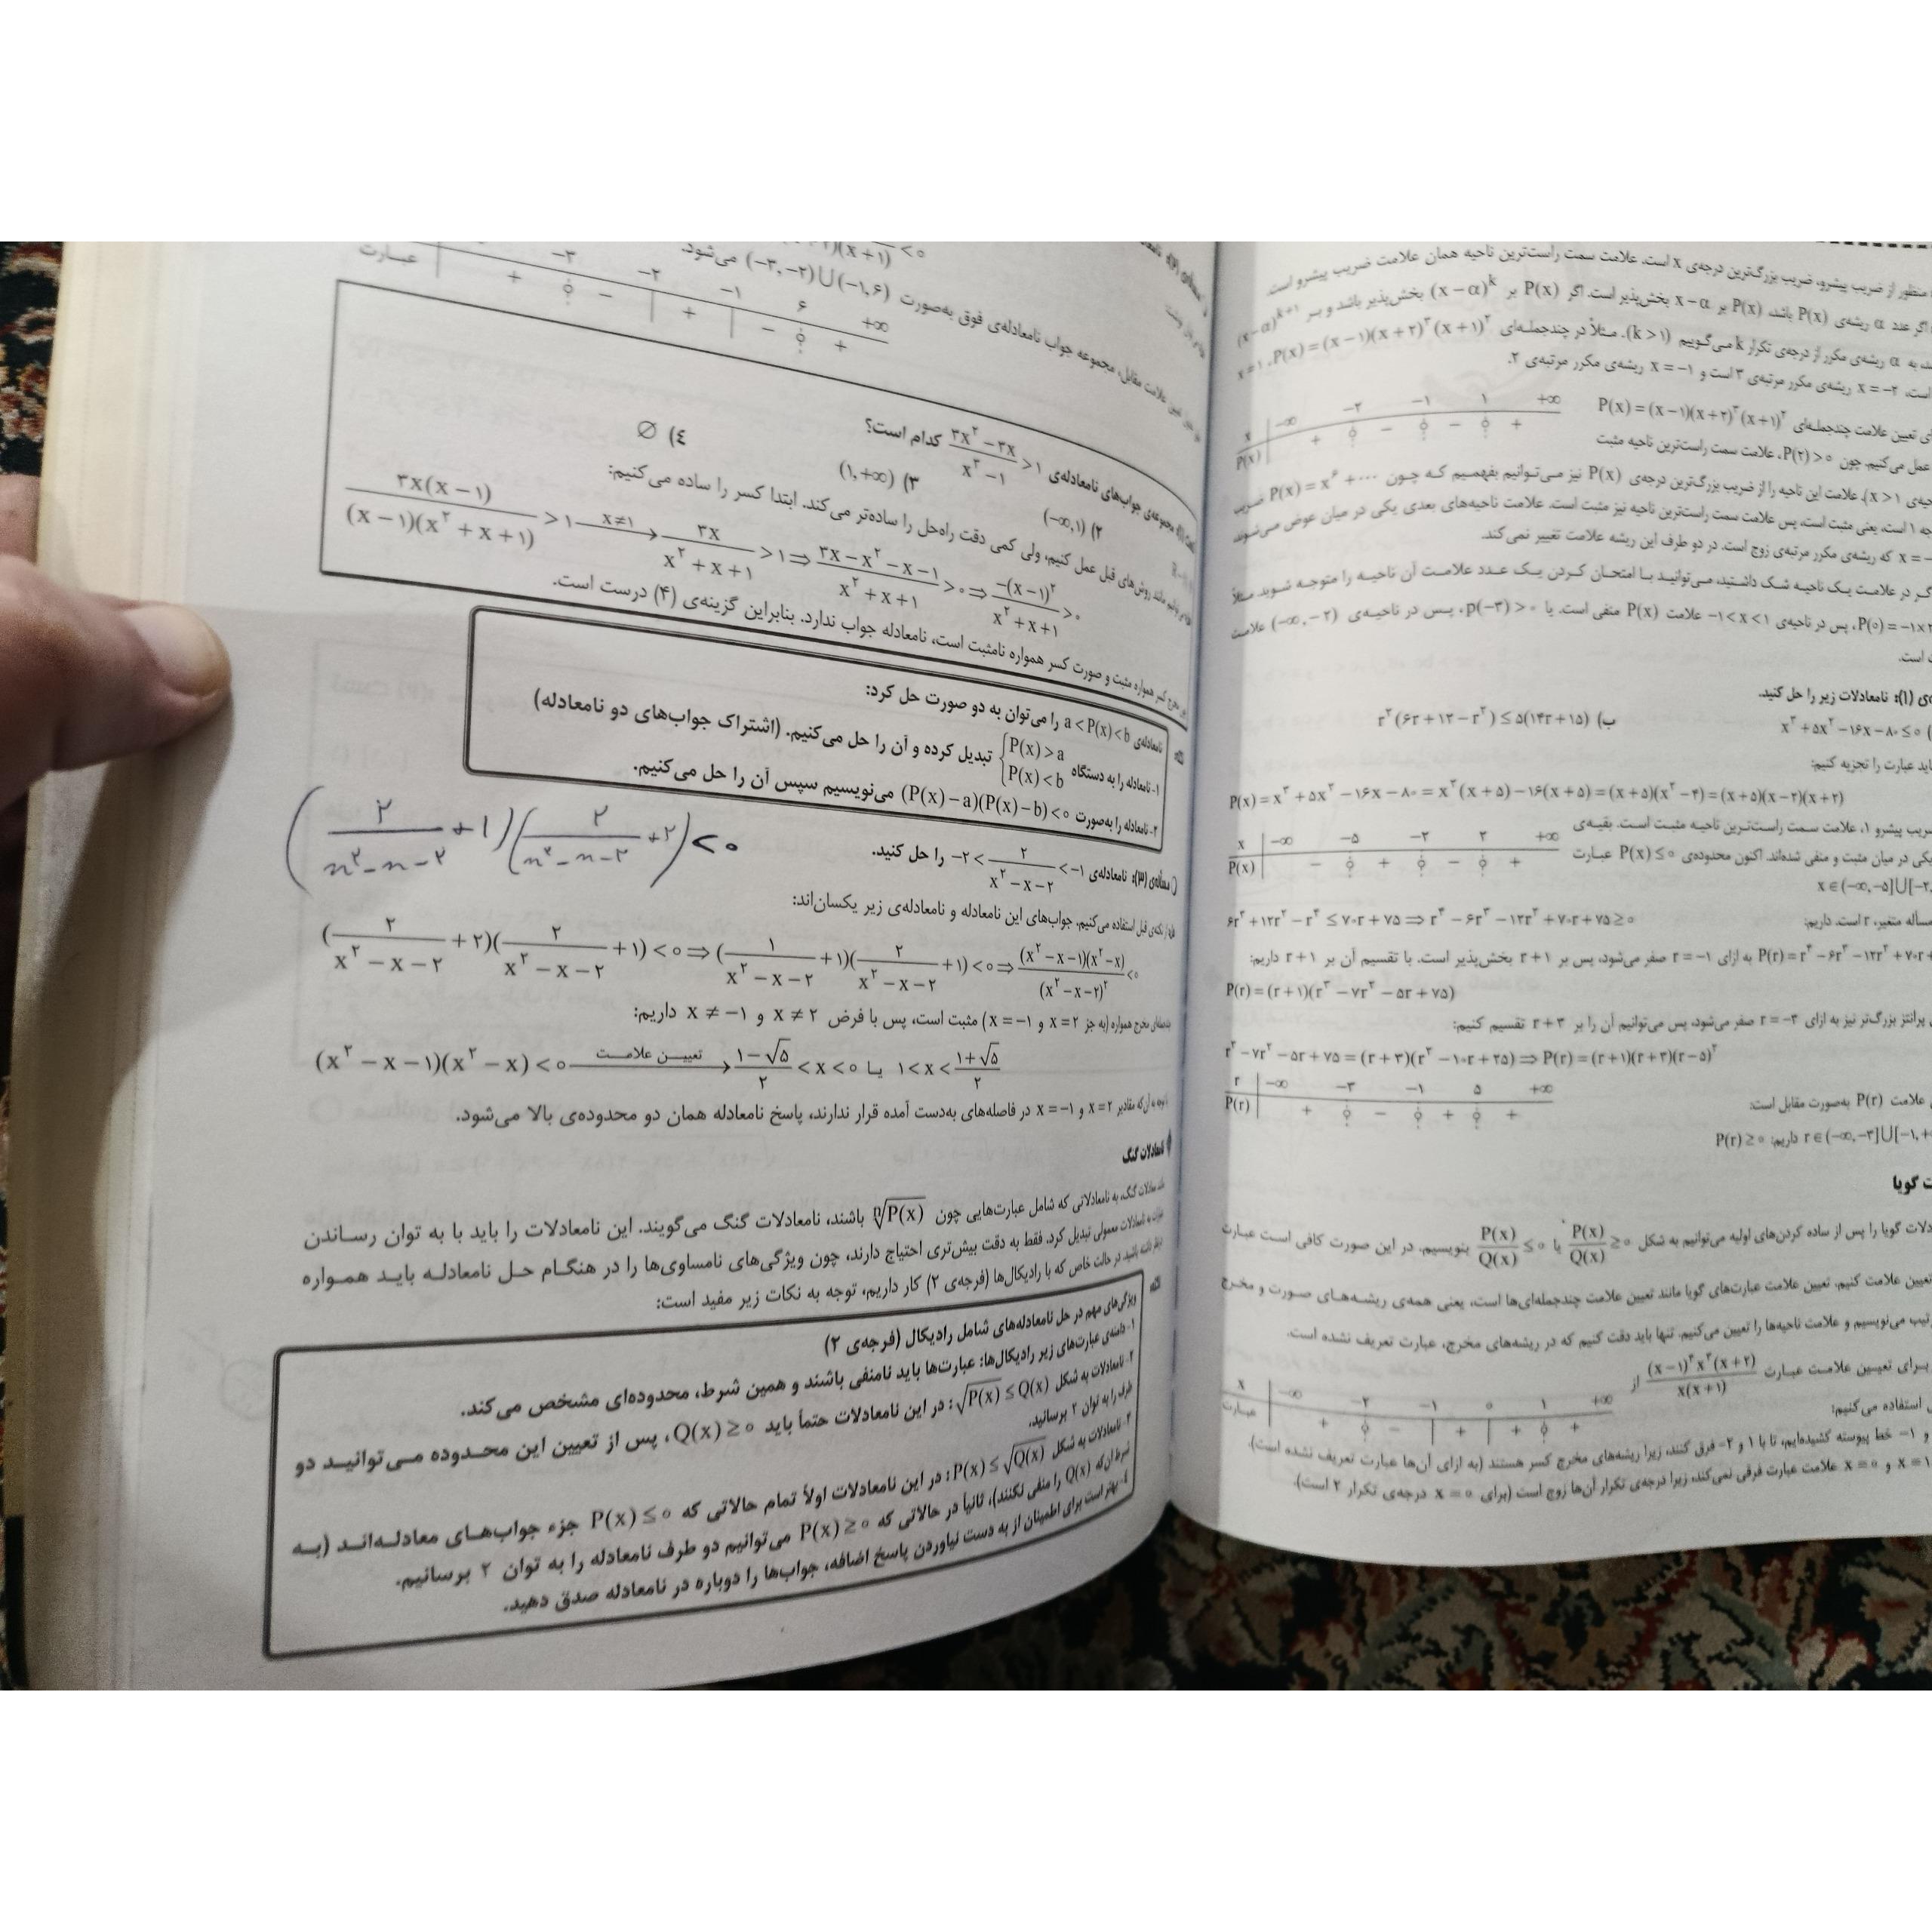 منظور از ضریب پیشرو، ضریب بزرگ‌ترین درجه‌ی x است. علامت سمت راست‌ترین ناحیه همان علامت ضریب پیشرو است.
اگر عدد α ریشه‌ی P(x) باشد، P(x) بر x−α بخش‌پذیر است. اگر P(x) بر (x−α)^k بخش‌پذیر باشد و بر (x−α)^{k+1}
به α ریشه‌ی مکرر از درجه‌ی تکرار k می‌گوییم (k>۱). مثلاً در چندجمله‌ای P(x)=(x−۱)(x+۲)^۳(x+۱)^۲، x=۱
است، x=−۲ ریشه‌ی مکرر مرتبه‌ی ۳ است و x=−۱ ریشه‌ی مکرر مرتبه‌ی ۲.
تعیین علامت چندجمله‌ای P(x)=(x−۱)(x+۲)^۳(x+۱)^۲
x −∞ −۲ −۱ ۱ +∞
P(x) + ۰ − ۰ − ۰ +
عمل می‌کنیم. چون P(۲)>۰، علامت سمت راست‌ترین ناحیه مثبت
(x>۱). علامت این ناحیه را از ضریب بزرگ‌ترین درجه‌ی P(x) نیز می‌توانیم بفهمیم که چون P(x)=x^۶+⋯ ضریب
۱ است، یعنی مثبت است، پس علامت سمت راست‌ترین ناحیه نیز مثبت است. علامت ناحیه‌های بعدی یکی در میان عوض می‌شوند،
که ریشه‌ی مکرر مرتبه‌ی زوج است، در دو طرف این ریشه علامت تغییر نمی‌کند.
اگر در علامت یک ناحیه شک داشتید، می‌توانید با امتحان کردن یک عدد علامت آن ناحیه را متوجه شوید. مثلاً
پس در ناحیه‌ی −۱<x<۱ علامت P(x) منفی است. یا p(−۳)>۰، پس در ناحیه‌ی (−∞,−۲) علامت
است.
(۱): نامعادلات زیر را حل کنید.
x^۳+۵x^۲−۱۶x−۸۰≤۰
ب) r^۲(۶r+۱۲−r^۲)≤۵(۱۴r+۱۵)
باید عبارت را تجزیه کنیم:
P(x)=x^۳+۵x^۲−۱۶x−۸۰=x^۲(x+۵)−۱۶(x+۵)=(x+۵)(x^۲−۴)=(x+۵)(x−۲)(x+۲)
ضریب پیشرو ۱، علامت سمت راست‌ترین ناحیه مثبت است. بقیه‌ی
x −∞ −۵ −۲ ۲ +∞
P(x) − ۰ + ۰ − ۰ +
یکی در میان مثبت و منفی شده‌اند. اکنون محدوده‌ی P(x)≤۰ عبارت
x∈(−∞,−۵]∪[−۲,
مسأله متغیر، r است. داریم:
۶r^۳+۱۲r^۲−r^۴≤۷۰r+۷۵⇒r^۴−۶r^۳−۱۲r^۲+۷۰r+۷۵≥۰
P(r)=r^۴−۶r^۳−۱۲r^۲+۷۰r+ به ازای r=−۱ صفر می‌شود، پس بر r+۱ بخش‌پذیر است. با تقسیم آن بر r+۱ داریم:
P(r)=(r+۱)(r^۳−۷r^۲−۵r+۷۵)
پرانتز بزرگ‌تر نیز به ازای r=−۳ صفر می‌شود، پس می‌توانیم آن را بر r+۳ تقسیم کنیم:
r^۳−۷r^۲−۵r+۷۵=(r+۳)(r^۲−۱۰r+۲۵)⇒P(r)=(r+۱)(r+۳)(r−۵)^۲
علامت P(r) به‌صورت مقابل است:
r −∞ −۳ −۱ ۵ +∞
P(r) + ۰ − ۰ + ۰ +
P(r)≥۰ داریم: r∈(−∞,−۳]∪[−۱,+
گویا
گویا را پس از ساده کردن‌های اولیه می‌توانیم به شکل P(x)/Q(x)≥۰ یا P(x)/Q(x)≤۰ بنویسیم. در این صورت کافی است عبارت
تعیین علامت کنیم. تعیین علامت عبارت‌های گویا مانند تعیین علامت چندجمله‌ای‌ها است، یعنی همه‌ی ریشه‌های صورت و مخرج
می‌نویسیم و علامت ناحیه‌ها را تعیین می‌کنیم. تنها باید دقت کنیم که در ریشه‌های مخرج، عبارت تعریف نشده است.
برای تعیین علامت عبارت (x−۱)^۲x^۳(x+۲)/x(x+۱) از
استفاده می‌کنیم:
x −∞ −۲ −۱ ۰ ۱ +∞
عبارت + ۰ − + + ۰ +
و −۱ خط پیوسته کشیده‌ایم، تا با ۱ و −۲ فرق کنند، زیرا ریشه‌های مخرج کسر هستند (به ازای آن‌ها عبارت تعریف نشده است).
x=۱ و x=۰ علامت عبارت فرقی نمی‌کند، زیرا درجه‌ی تکرار آن‌ها زوج است (برای x=۰ درجه‌ی تکرار ۲ است).
(x+۱) <۰
مجموعه جواب نامعادله‌ی فوق به‌صورت (−۳,−۲)∪(−۱,۶) می‌شود.
−۳ −۲ −۱ ۶ +∞
عبارت + ۰ − + − ۰ +
مجموعه‌ی جواب‌های نامعادله‌ی ۳x^۲−۳x/x^۳−۱>۱ کدام است؟
۲) (−∞,۱)
۳) (۱,+∞)
۴) ∅
مانند روش‌های قبل عمل کنیم، ولی کمی دقت راه‌حل را ساده‌تر می‌کند. ابتدا کسر را ساده می‌کنیم:
۳x(x−۱)/(x−۱)(x^۲+x+۱)>۱ —x≠۱→ ۳x/x^۲+x+۱>۱⇒۳x−x^۲−x−۱/x^۲+x+۱>۰⇒−(x−۱)^۲/x^۲+x+۱>۰
مخرج کسر همواره مثبت و صورت کسر همواره نامثبت است، نامعادله جواب ندارد. بنابراین گزینه‌ی (۴) درست است.
نامعادله‌ی a<P(x)<b را می‌توان به دو صورت حل کرد:
۱- نامعادله را به دستگاه {P(x)>a P(x)<b تبدیل کرده و آن را حل می‌کنیم. (اشتراک جواب‌های دو نامعادله)
۲- نامعادله را به‌صورت (P(x)−a)(P(x)−b)<۰ می‌نویسیم سپس آن را حل می‌کنیم.
(۲/n^۲−n−۲+۱)(۲/n^۲−n−۲+۲)<۰
مسأله‌ی (۳): نامعادله‌ی −۲<۲/x^۲−x−۲<−۱ را حل کنید.
از نکته‌ی قبل استفاده می‌کنیم، جواب‌های این نامعادله و نامعادله‌ی زیر یکسان‌اند:
(۲/x^۲−x−۲+۲)(۲/x^۲−x−۲+۱)<۰⇒(۱/x^۲−x−۲+۱)(۲/x^۲−x−۲+۱)<۰⇒(x^۲−x−۱)(x^۲−x)/(x^۲−x−۲)^۲<۰
مخرج همواره (به جز x=۲ و x=−۱) مثبت است، پس با فرض x≠۲ و x≠−۱ داریم:
(x^۲−x−۱)(x^۲−x)<۰ —تعیین علامت→ ۱−√۵/۲<x<۰ یا ۱<x<۱+√۵/۲
با توجه به آن‌که مقادیر x=۲ و x=−۱ در فاصله‌های به‌دست آمده قرار ندارند، پاسخ نامعادله همان دو محدوده‌ی بالا می‌شود.
نامعادلات گنگ
مانند معادلات گنگ، به نامعادلاتی که شامل عبارت‌هایی چون ⁿ√P(x) باشند، نامعادلات گنگ می‌گویند. این نامعادلات را باید با به توان رساندن
عبارات به نامعادلات معمولی تبدیل کرد. فقط به دقت بیش‌تری احتیاج دارند، چون ویژگی‌های نامساوی‌ها را در هنگام حل نامعادله باید همواره
در نظر داشته باشید. در حالت خاص که با رادیکال‌ها (فرجه‌ی ۲) کار داریم، توجه به نکات زیر مفید است:
ویژگی‌های مهم در حل نامعادله‌های شامل رادیکال (فرجه‌ی ۲)
۱- دامنه‌ی عبارت‌های زیر رادیکال‌ها: عبارت‌ها باید نامنفی باشند و همین شرط، محدوده‌ای مشخص می‌کند.
۲- نامعادلات به شکل √P(x)≤Q(x): در این نامعادلات حتماً باید Q(x)≥۰، پس از تعیین این محدوده می‌توانید دو
طرف را به توان ۲ برسانید.
۳- نامعادلات به شکل P(x)≤√Q(x): در این نامعادلات اولاً تمام حالاتی که P(x)≤۰ جزء جواب‌های معادله‌اند (به
شرط آن‌که Q(x) را منفی نکنند)، ثانیاً در حالاتی که P(x)≥۰ می‌توانیم دو طرف نامعادله را به توان ۲ برسانیم.
۴- بهتر است برای اطمینان از به دست نیاوردن پاسخ اضافه، جواب‌ها را دوباره در نامعادله صدق دهید.